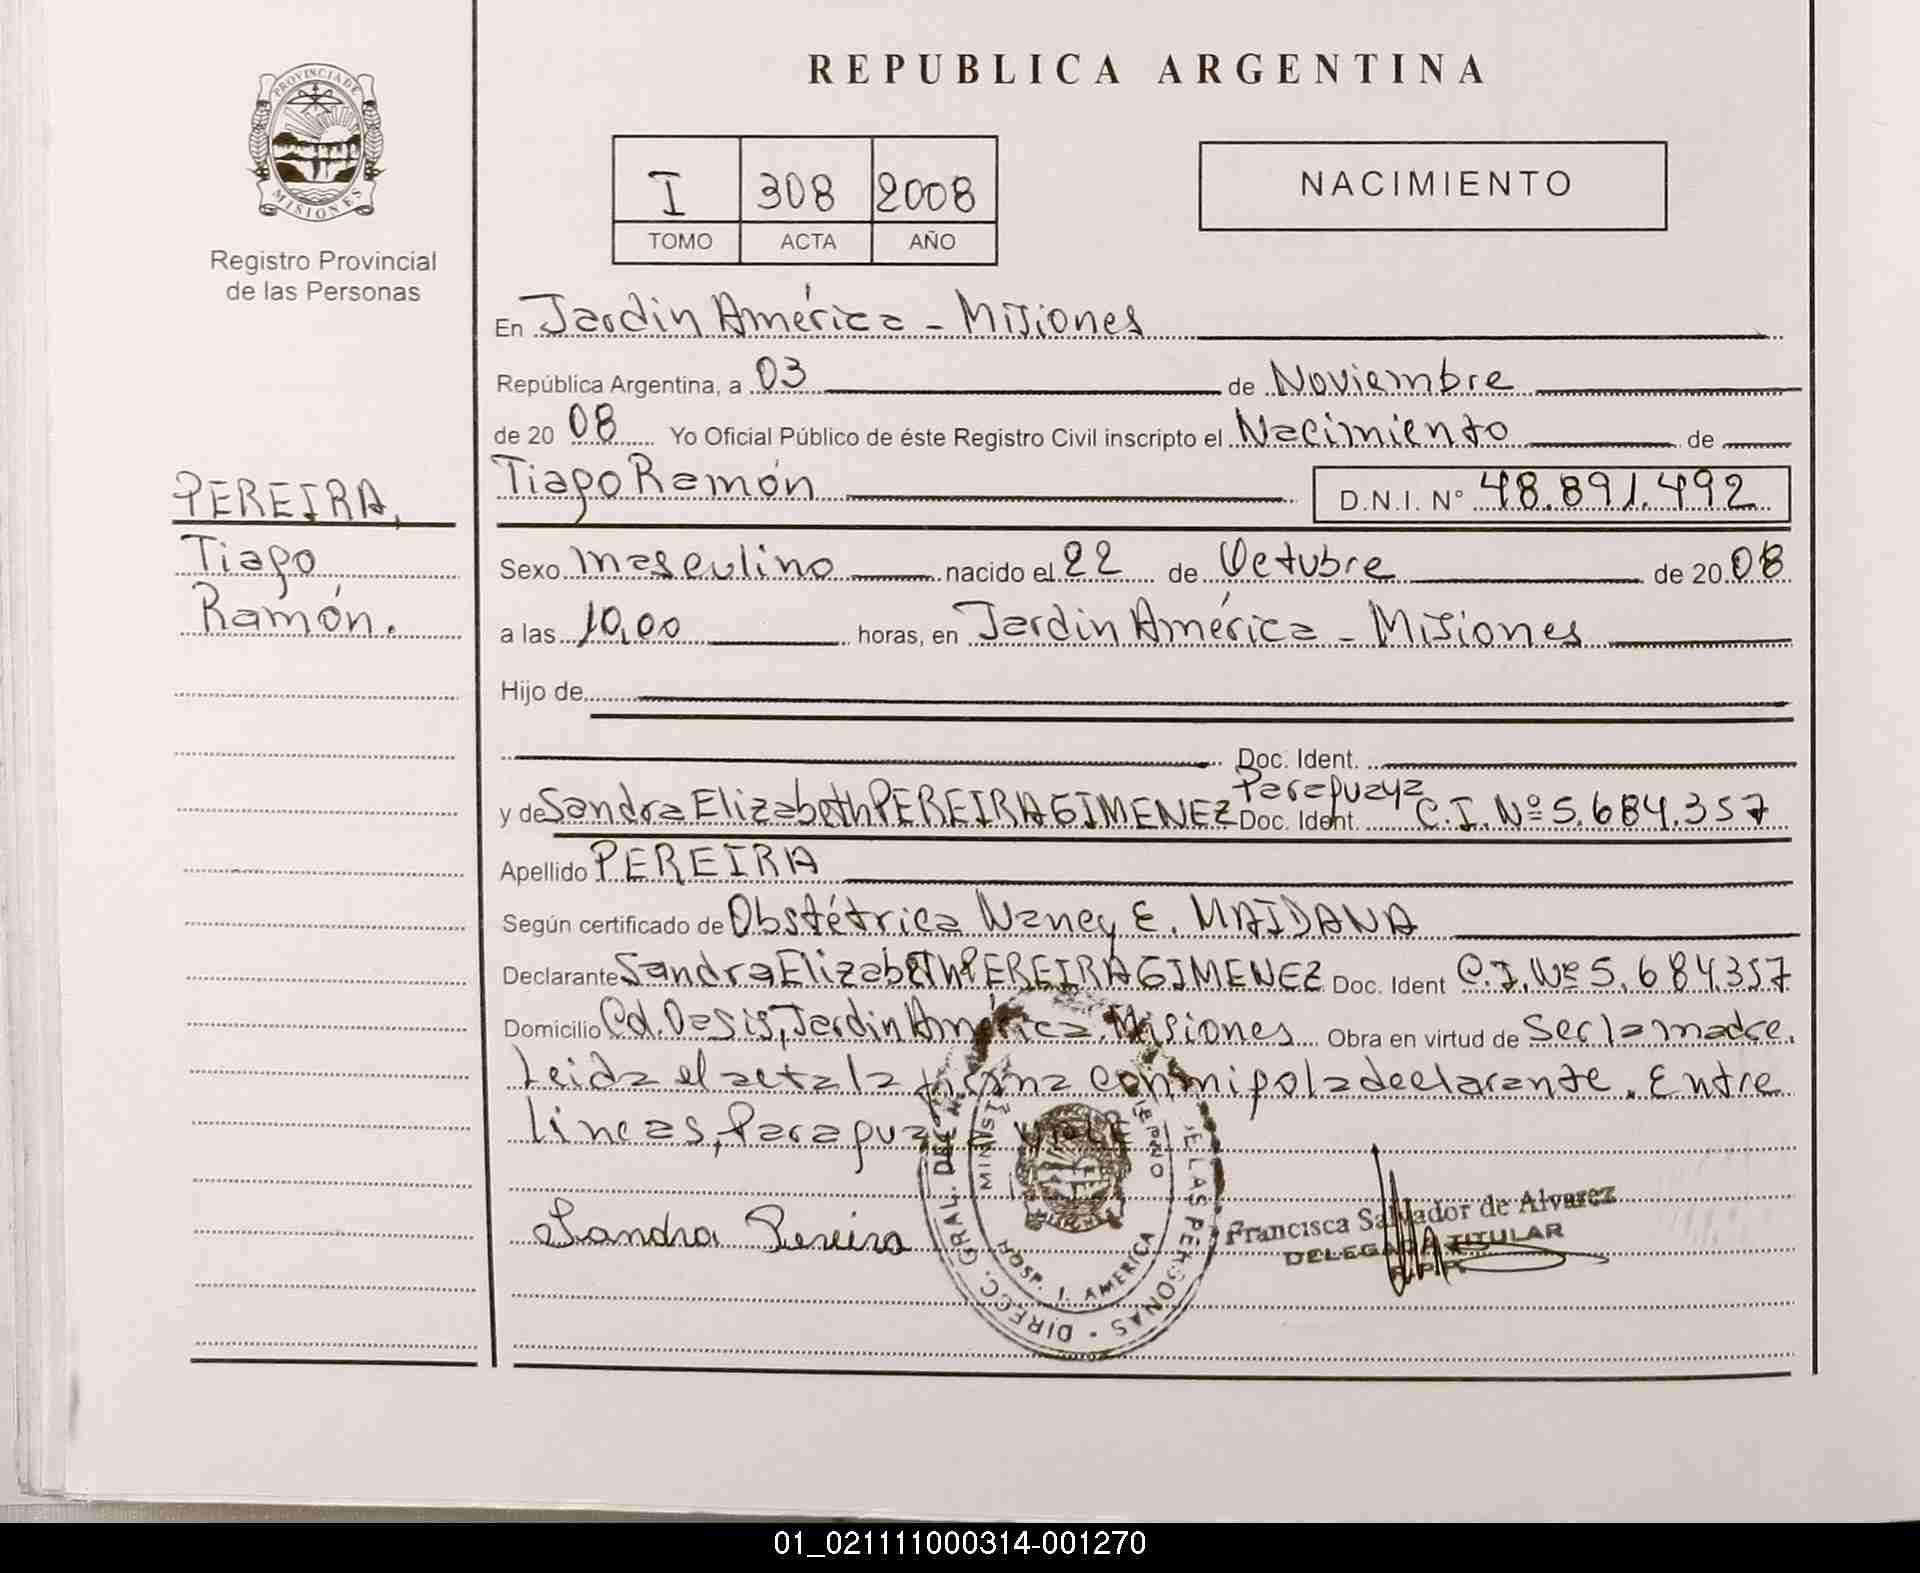 REPUBLICA ARGENTINA
PROVINCIA DE
MISIONES
Registro Provincial
de las Personas
I 308 2008
TOMO ACTA AÑO
NACIMIENTO
En Jardin América - Misiones
República Argentina, a 03 de Noviembre
de 20 08 Yo Oficial Público de éste Registro Civil inscripto el Nacimiento de
Tiago Ramón D.N.I. Nº 48.891.492
PEREIRA,
Tiago
Ramón.
Sexo masculino nacido el 22 de Octubre de 20 08
a las 10,00 horas, en Jardin América - Misiones
Hijo de
Doc. Ident.
Paraguaya
y de Sandra Elizabeth PEREIRA GIMENEZ Doc. Ident. C.I. Nº 5.684.357
Apellido PEREIRA
Según certificado de Obstétrica Nancy E. MAIDANA
Declarante Sandra Elizabeth PEREIRA GIMENEZ Doc. Ident C.I. Nº 5.684.357
Domicilio Cd. Oasis, Jardin América. Misiones Obra en virtud de Ser la madre.
Leida el acta la firma conmipo la declarante. Entre
lineas, Paraguaya vale
Sandra Pereira
DIRECC. GRAL. DE LAS PERSONAS
HOSP. J. AMERICA
Francisca Salvador de Alvarez
DELEGADA TITULAR
R.P.P.
01_021111000314-001270